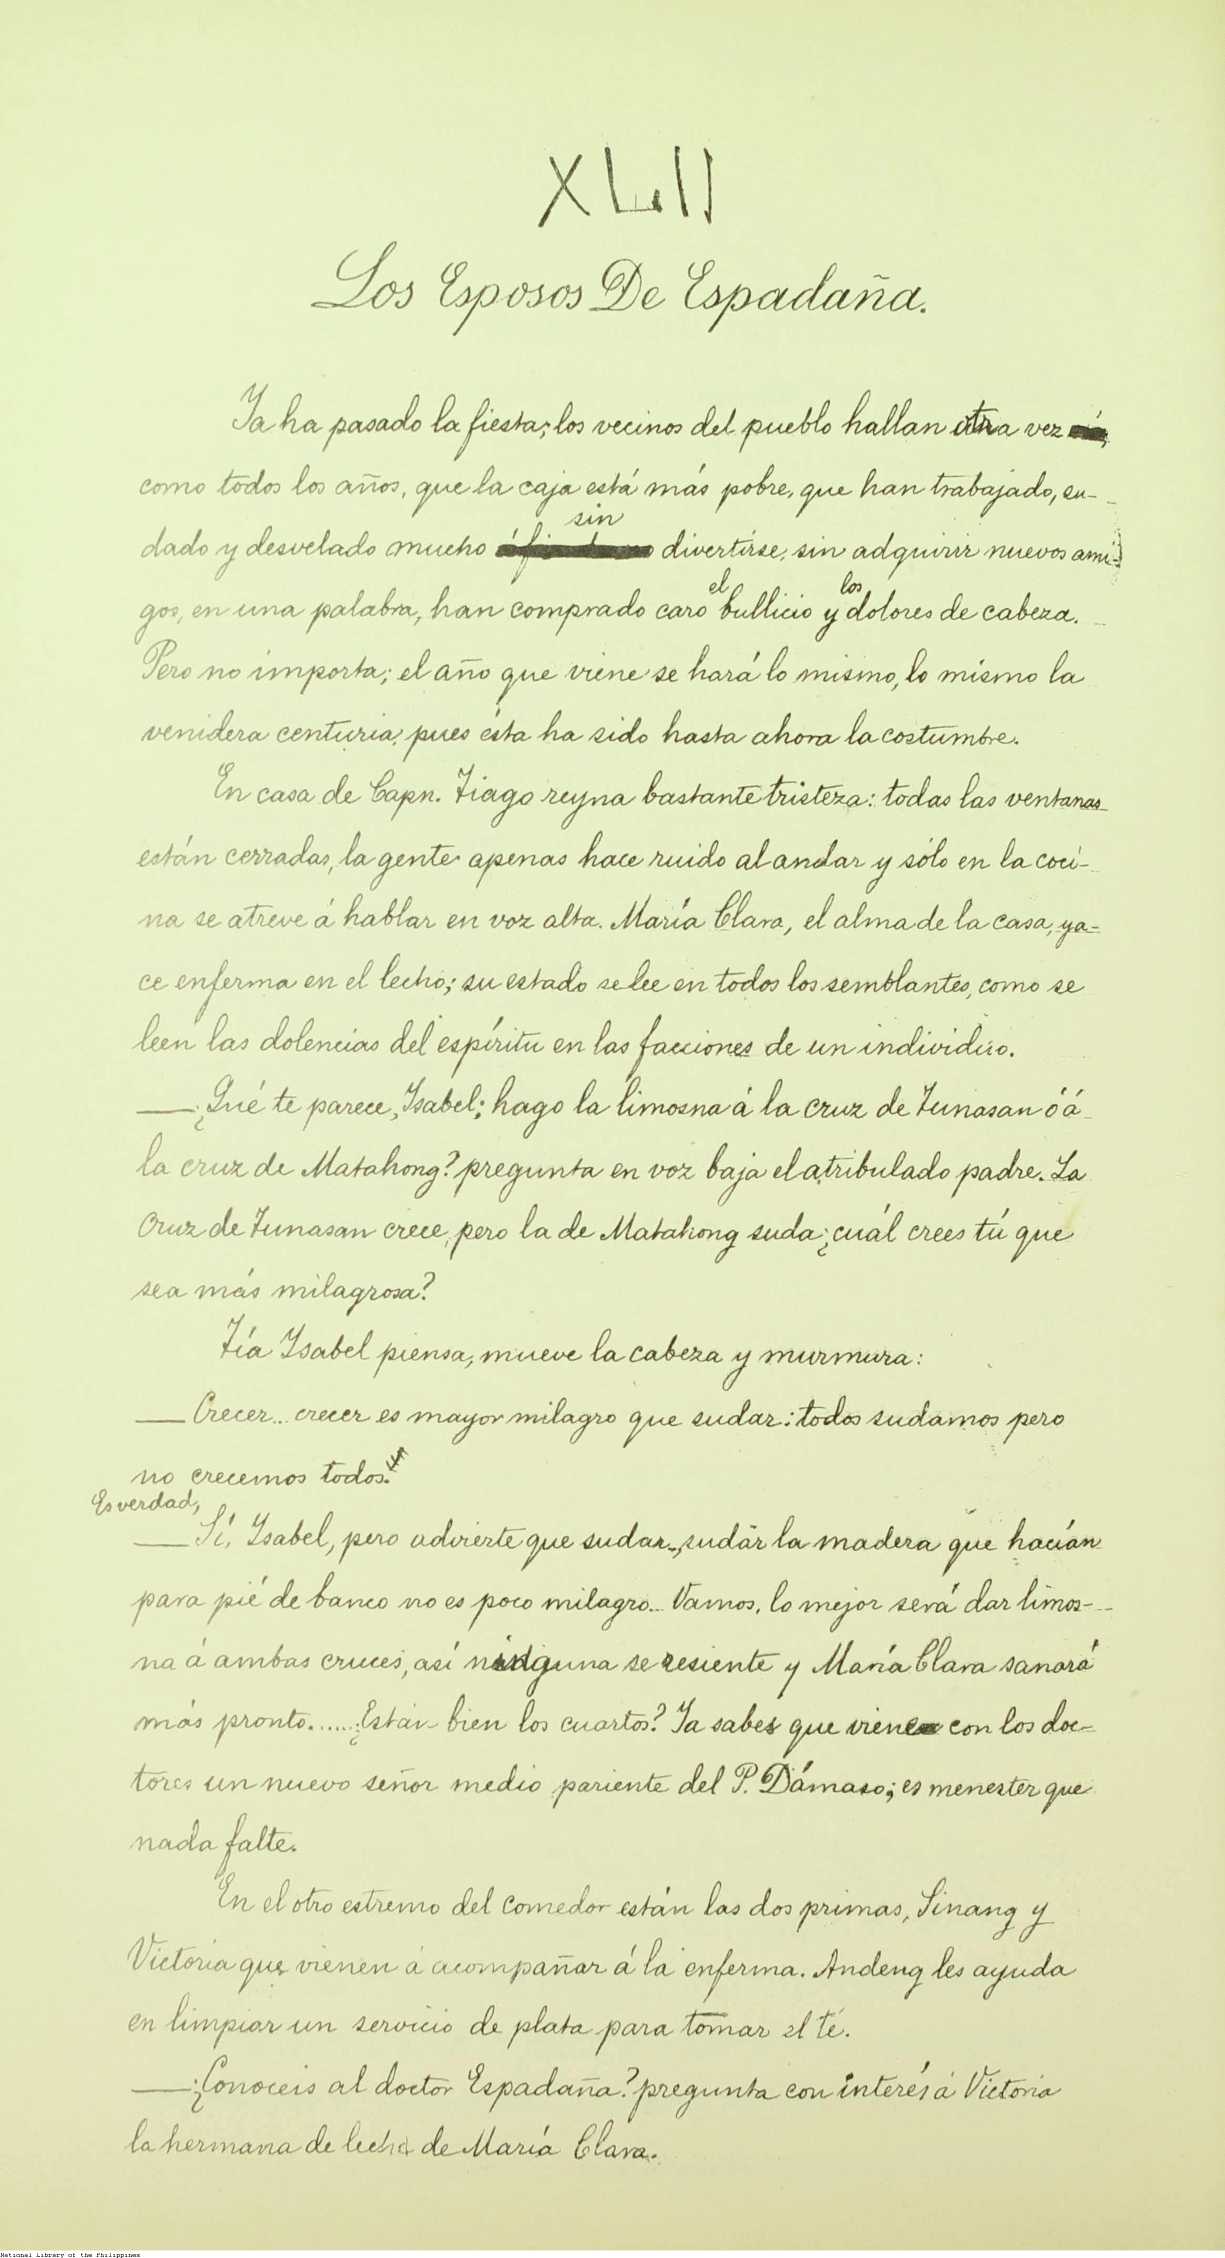 XLII
Los Esposos De Espadaña.
Ya ha pasado la fiesta; los vecinos del pueblo hallan otra vez
como todos los años, que la caja está más pobre, que han trabajado, su-
sin
dado y desvelado mucho divertirse, sin adquirir nuevos ami-
el los
gos, en una palabra, han comprado caro bullicio y dolores de cabeza.
Pero no importa; el año que viene se hará lo mismo, lo mismo la
venidera centuria, pues ésta ha sido hasta ahora la costumbre.
En casa de Capn. Tiago reyna bastante tristeza: todas las ventanas
están cerradas, la gente apenas hace ruido al andar y sólo en la coci-
na se atreve á hablar en voz alta. María Clara, el alma de la casa, ya-
ce enferma en el lecho; su estado se lee en todos los semblantes, como se
leen las dolencias del espíritu en las facciones de un individuo.
— ¿Qué te parece, Ysabel; hago la limosna á la cruz de Tunasan ó á
la cruz de Matahong? pregunta en voz baja el atribulado padre. La
Cruz de Tunasan crece, pero la de Matahong suda; ¿cuál crees tú que
sea más milagrosa?
Tía Ysabel piensa, mueve la cabeza y murmura:
— Crecer... crecer es mayor milagro que sudar: todos sudamos pero
no crecemos todos.
Es verdad,
— Sí, Ysabel, pero advierte que sudar.., sudar la madera que hacían
para pié de banco no es poco milagro... Vamos, lo mejor será dar limos-
na á ambas cruces, así ninguna se resiente y María Clara sanará
más pronto...... ¿Están bien los cuartos? Ya sabes que viene con los doc-
tores un nuevo señor medio pariente del P. Dámaso; es menester que
nada falte.
En el otro estremo del comedor están las dos primas, Sinang y
Victoria que vienen á acompañar á la enferma. Andeng les ayuda
en limpiar un servicio de plata para tomar el té.
— ¿Conoceis al doctor Espadaña? pregunta con interés á Victoria
la hermana de leche de María Clara.
National Library of the Philippines